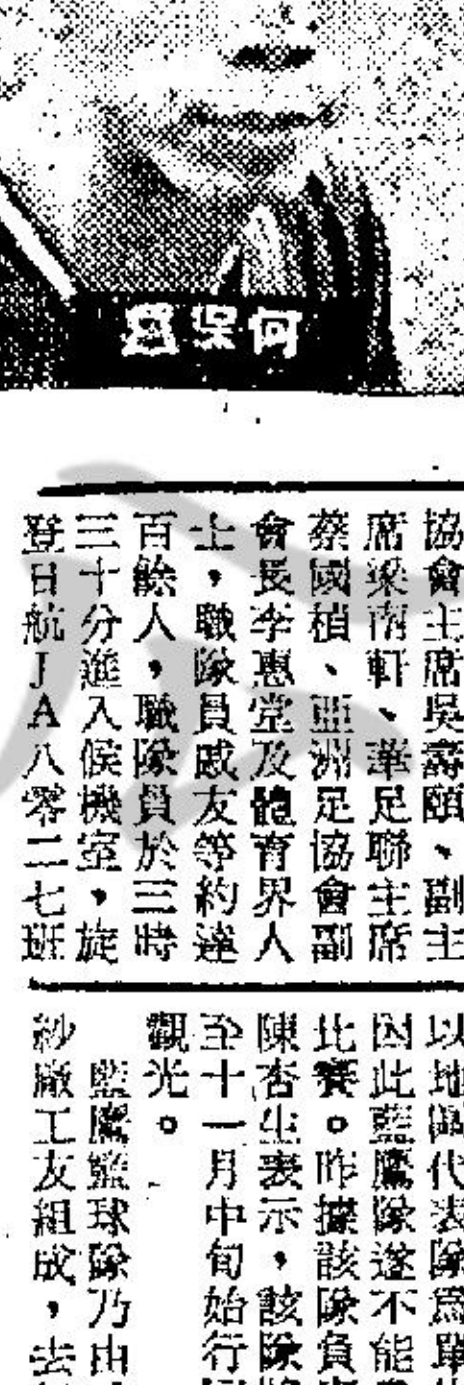 何保
協會主席吳壽頤、副主
席梁南軒、華足聯主席
蔡國楨、亞洲足協會副
會長李惠堂及體育界人
士，職隊員戚友等約達
百餘人，職隊員於三時
三十分進入候機室，旋
登日航JA八零二七班
以地區代表隊為單
因此藍鷹隊遂不能
比賽。昨據該隊負
陳杏生表示，該隊
至十一月中旬始行
觀光。
藍鷹籃球隊乃由
紗廠工友組成，去